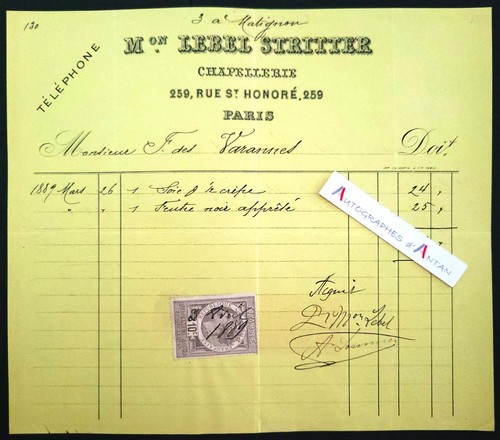 130
3 av Matignon
TÉLÉPHONE
MON LEBEL STRITTER
CHAPELLERIE
259, RUE ST HONORÉ, 259
PARIS
Monsieur F. des Varannes Doit
1889 Mars 26 1 Soie & crêpe 24 "
" " 1 Feutre noir apprêté 25 "
AUTOGRAPHES d'ANTAN
Acquis
Pr Mon Lebel
Avril
1889
10c